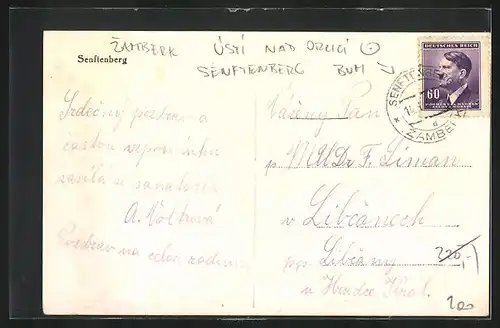 ŽAMBERK ÚSTÍ NAD ORLICÍ
SENFTENBERG BUM
Senftenberg
DEUTSCHES REICH
60
SENFTENBERG
ŽAMBERK
Srdečný pozdrav a
častou vzpomínku
zasílá ze sanatoria
A. Voltrová
Pozdrav na celou rodinu
Vážený Pan
p MUDr F. Liman
v Libčanech
p. Libčany
u Hradce Král.
220,-
200